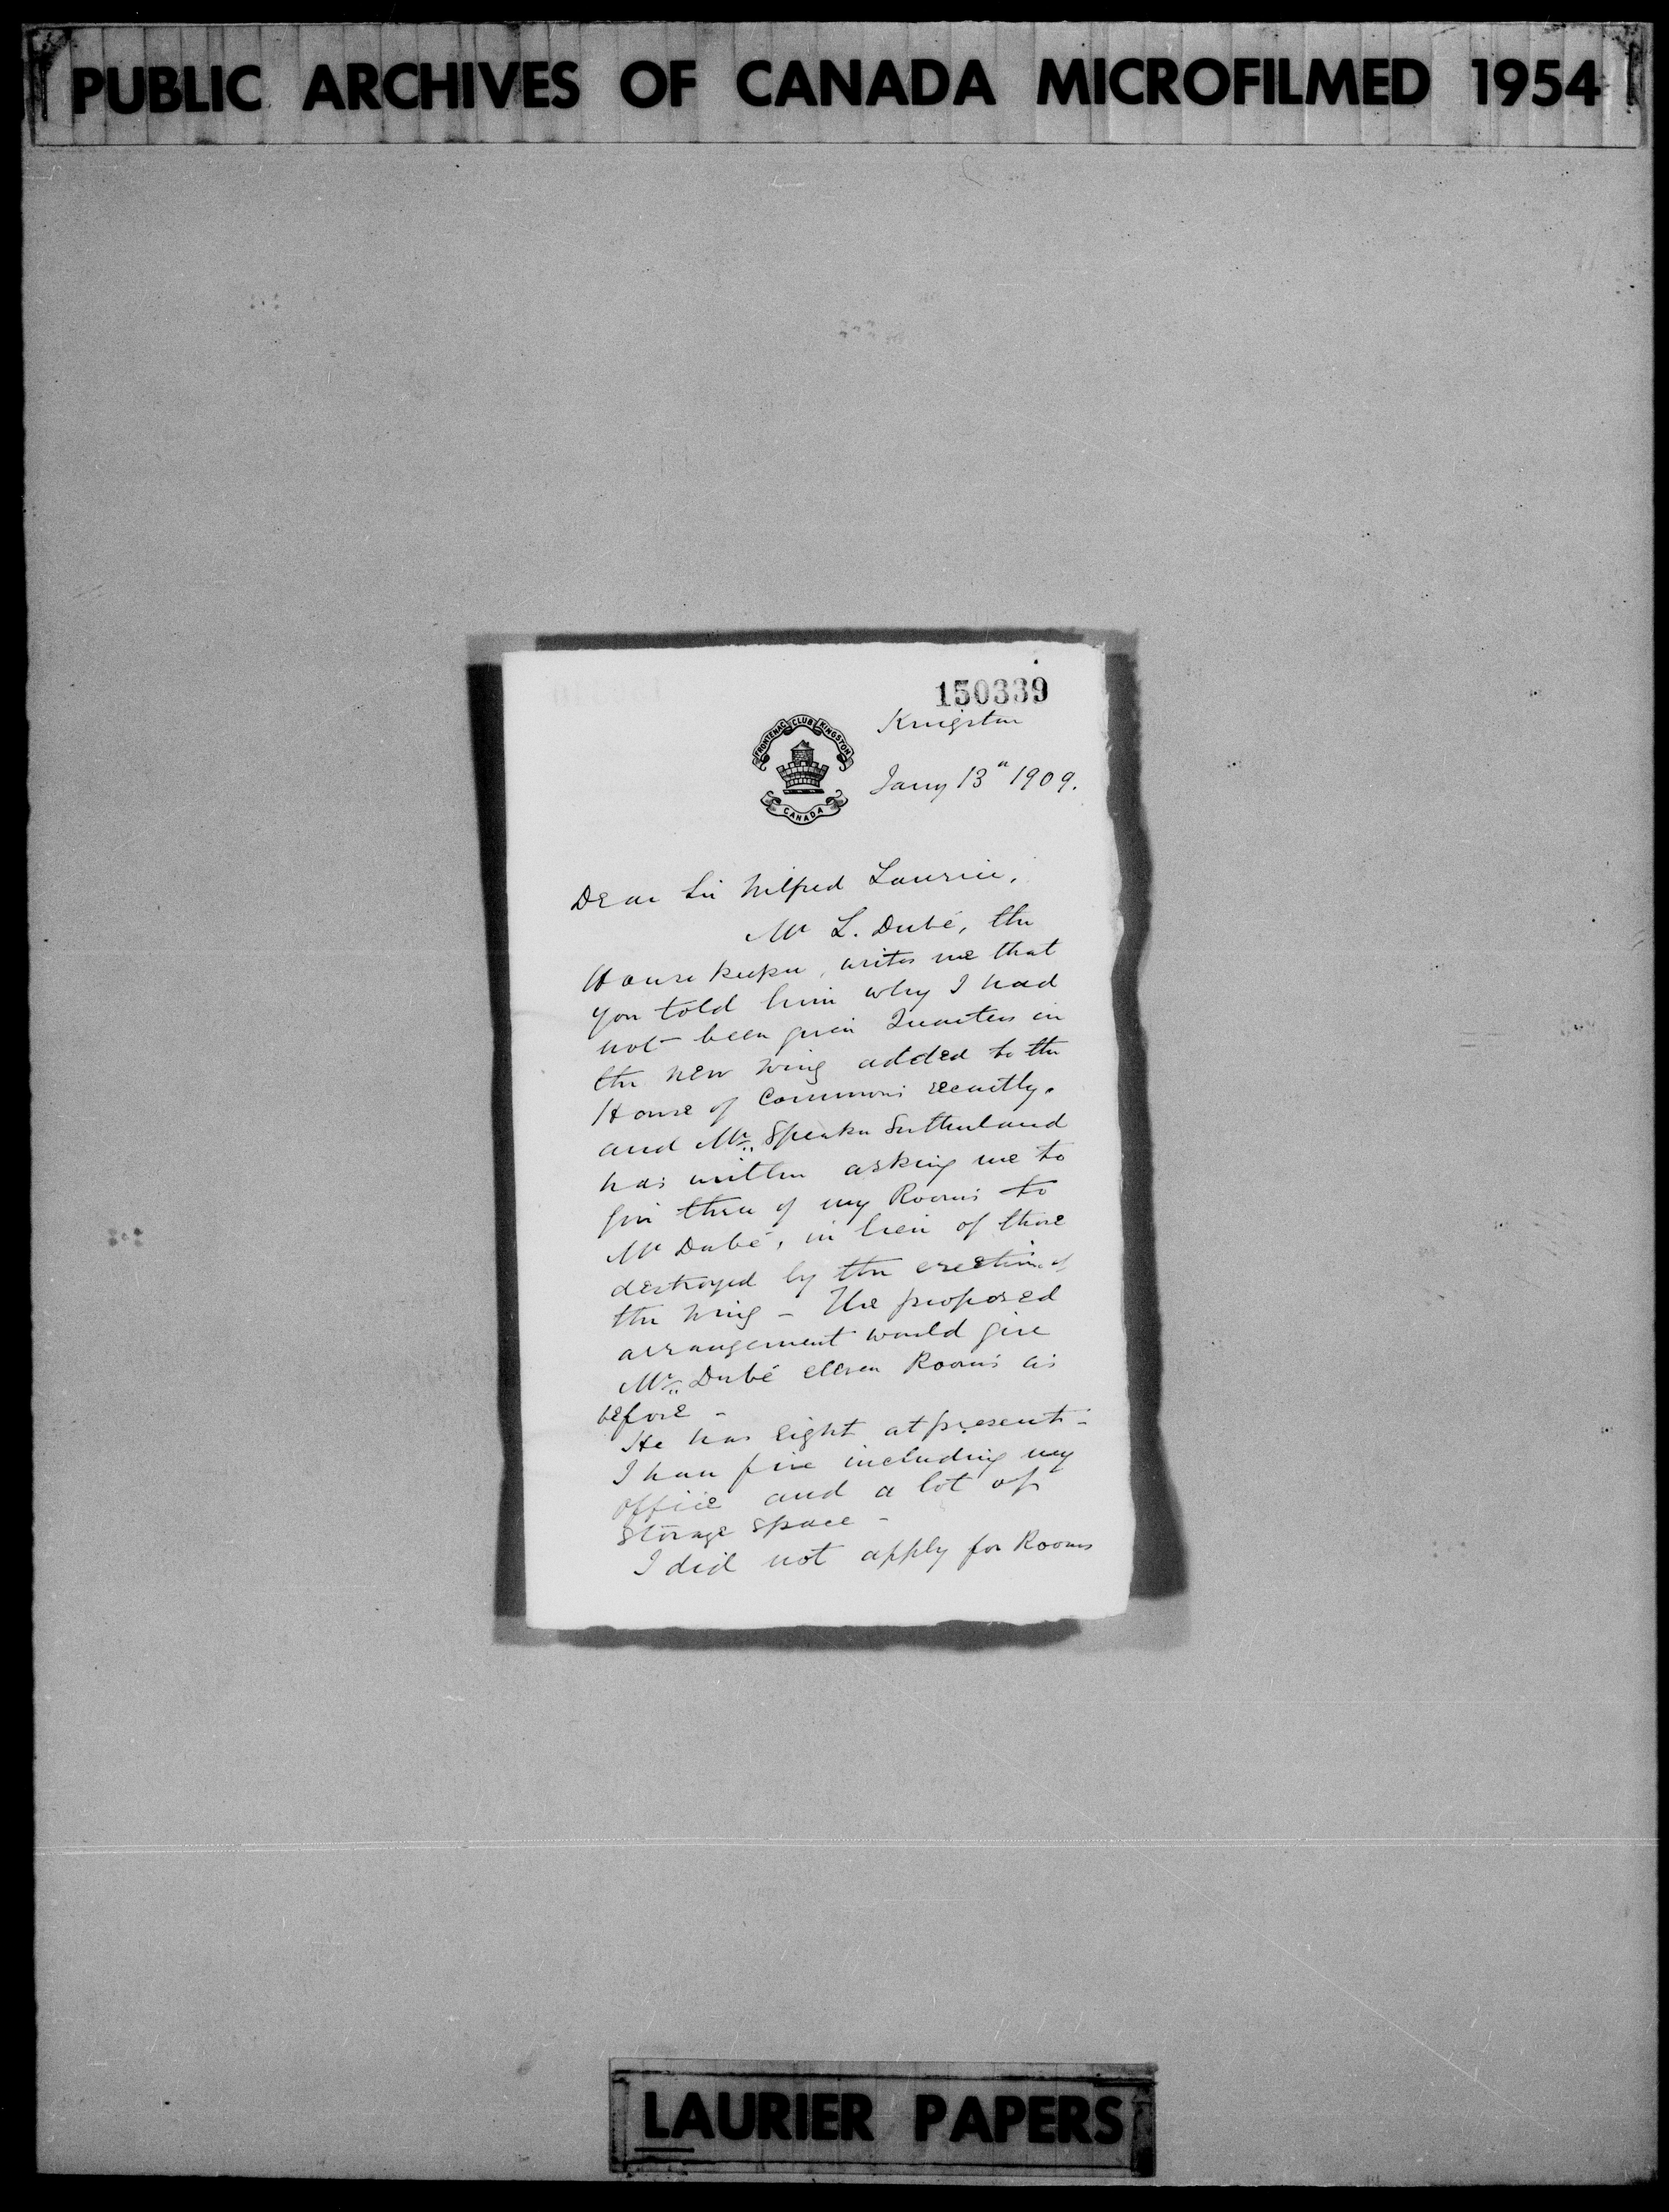 PUBLIC ARCHIVES OF CANADA MICROFILMED 1954
150339
Kingston
FRONTENAC CLUB KINGSTON
CANADA
Jany 13" 1909.
Dear Sir Wilfred Laurier,
Mr L. Dubé, the
House keeper, writes me that
you told him why I had
not been given Quarters in
the new wing added to the
House of Commons recently.
and Mr. Speaker Sutherland
has written asking me to
give three of my Rooms to
Mr Dubé, in lieu of those
destroyed by the erection of
the wing - The proposed
arrangement would give
Mr. Dubé eleven Rooms as
before -
He has eight at present -
I have five including my
office and a lot of
storage space -
I did not apply for Rooms
LAURIER PAPERS